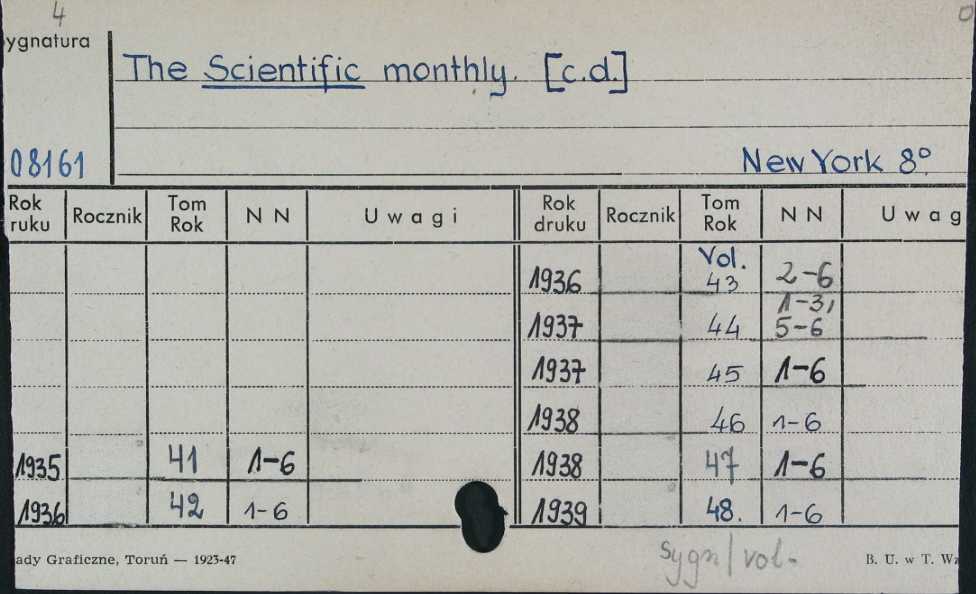 4
ygnatura
The Scientific monthly. [c.d.]
08161
New York 8°.
Rok ruku Rocznik Tom Rok N N Uwagi Rok druku Rocznik Tom Rok N N Uwag
Vol.
1936 43 2-6
1937 44 1-3, 5-6
1937 45 1-6
1938 46 1-6
1935 41 1-6 1938 47 1-6
1936 42 1-6 1939 48. 1-6
ady Graficzne, Toruń — 1923-47
sygn/vol.
B. U. w T. Wz